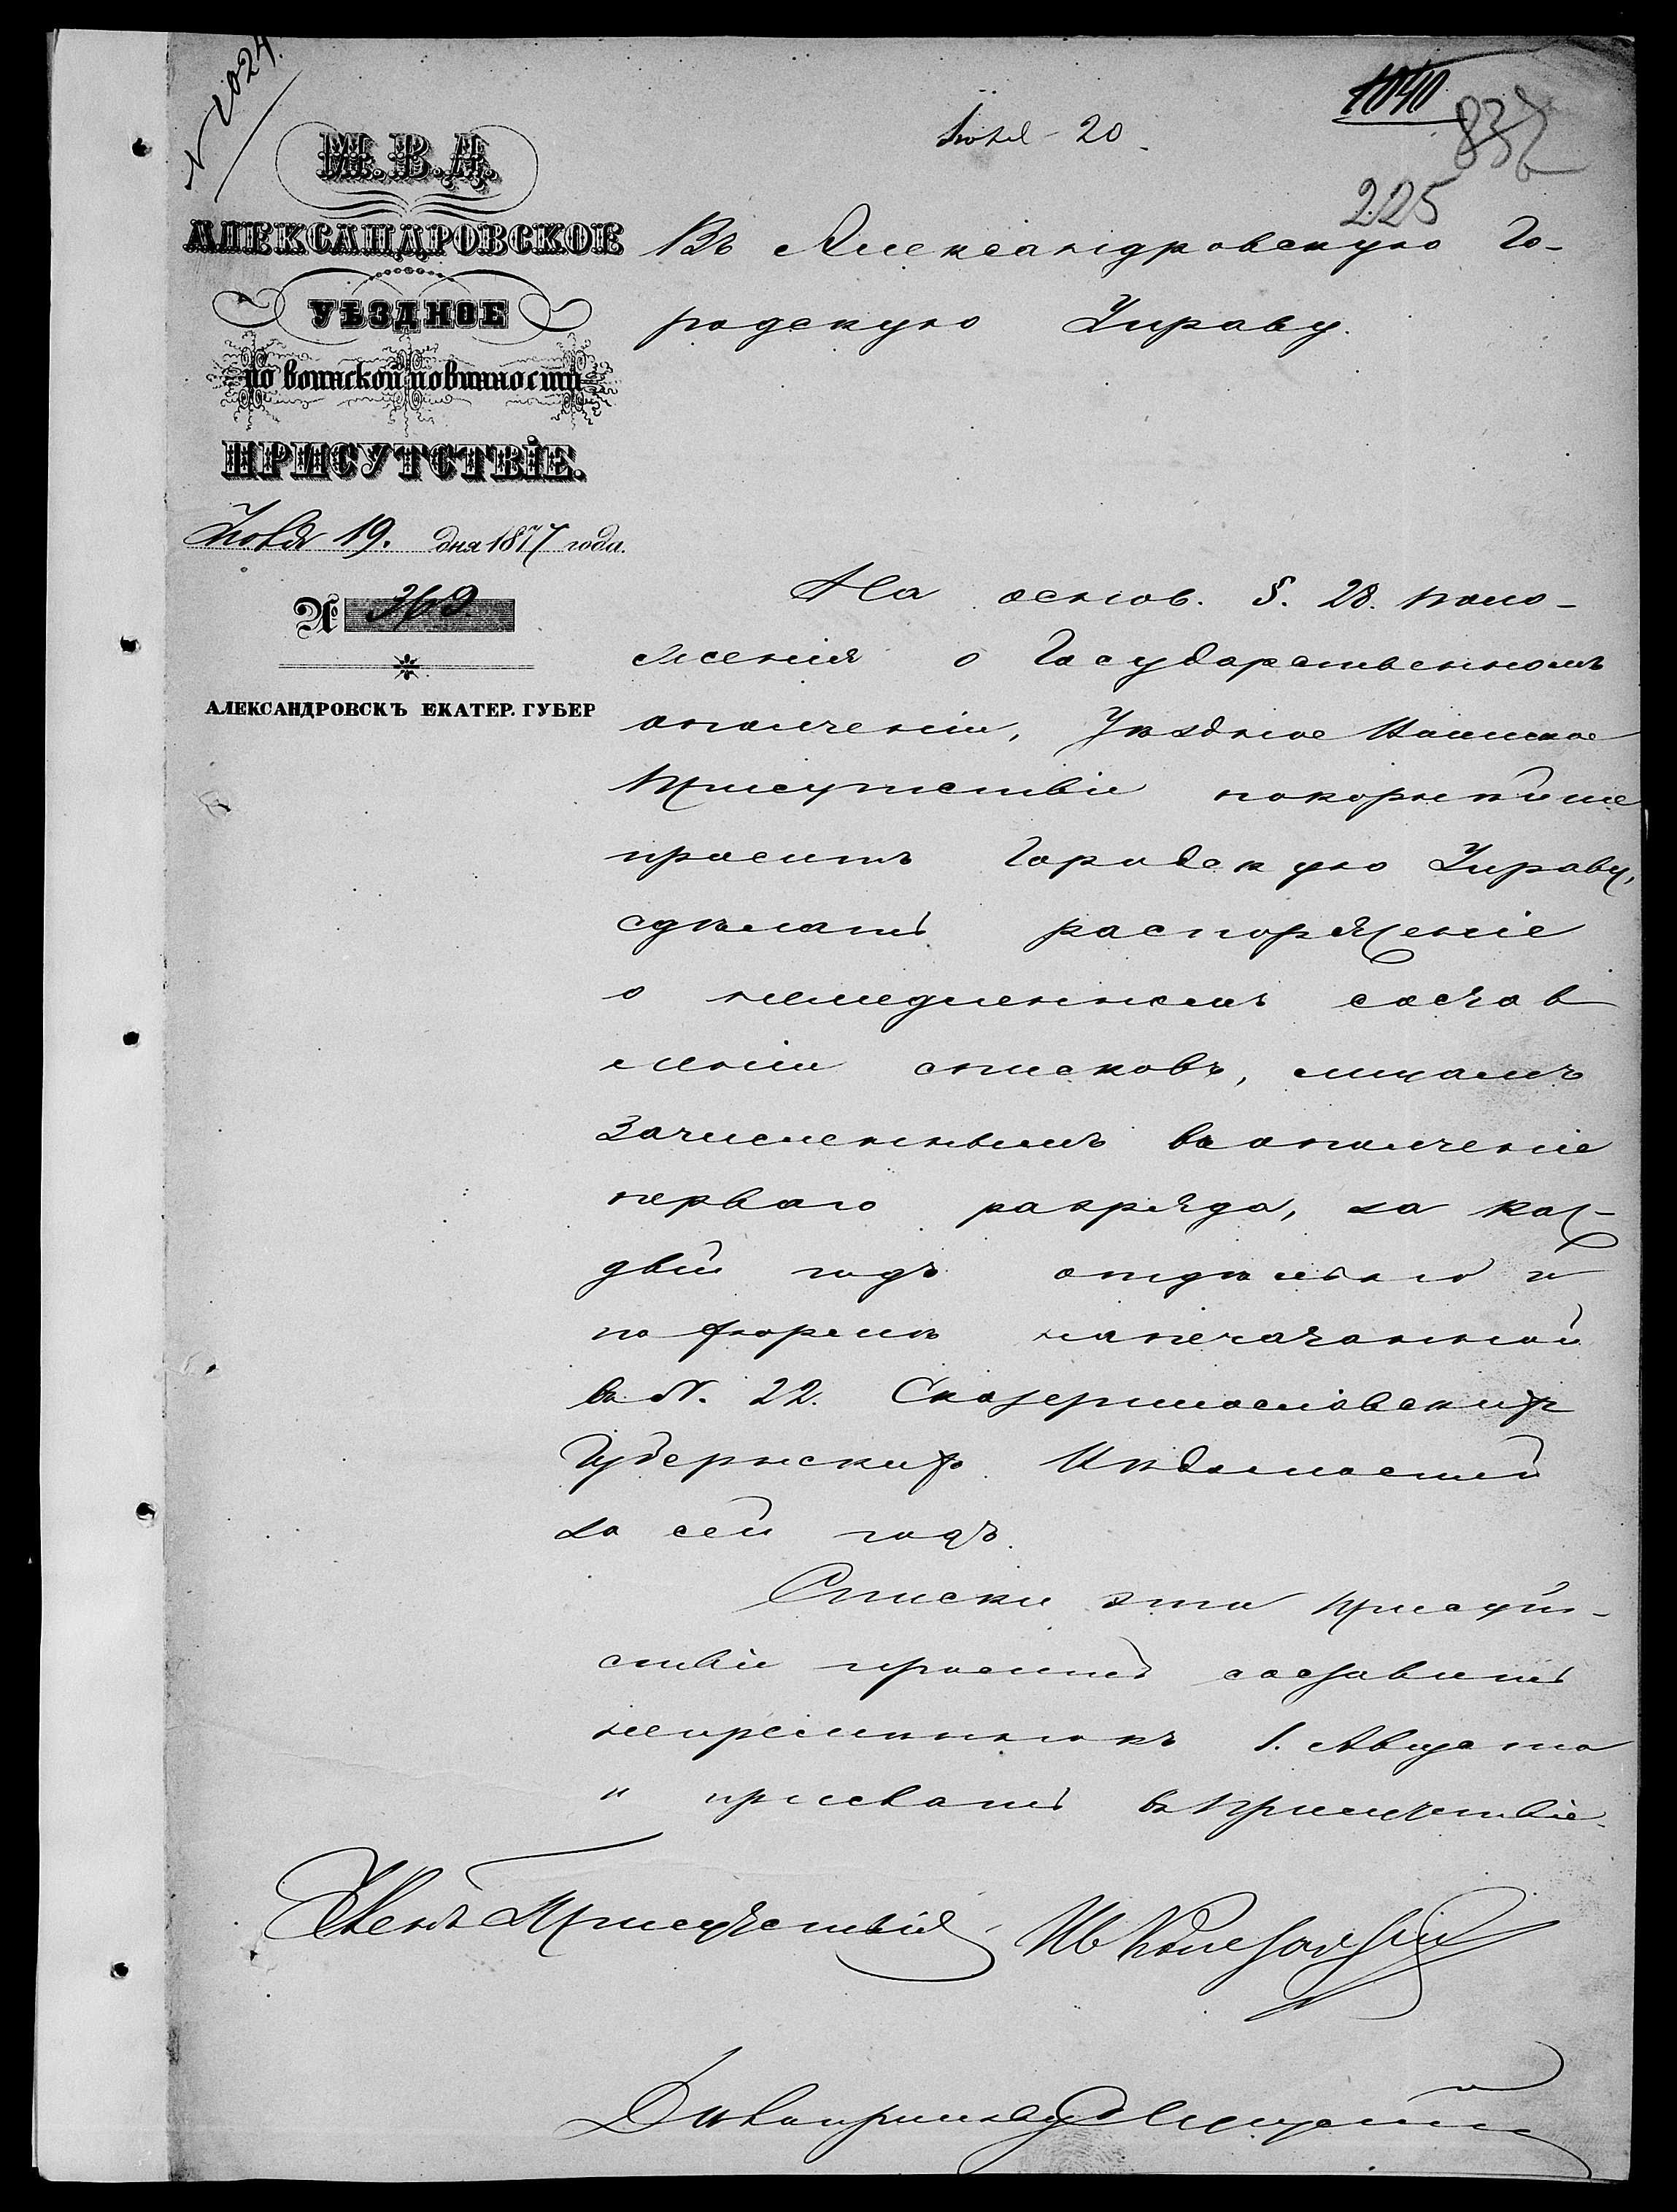 № 1024.
1040
832
225
Іюля 20
М. В. Д.
АЛЕКСАНДРОВСКОЕ
УѢЗДНОЕ
по воинской повинности
ПРИСУТСТВІЕ.
Іюля 19. дня 1877 года.
№ 363
АЛЕКСАНДРОВСКЪ ЕКАТЕР. ГУБЕР
Въ Александровскую Го-
родскую Управу.
На основ. §. 28. поло-
женія о Государственномъ
ополченіи, Уѣздное Воинское
Присутствіе покорнѣйше
проситъ Городскую Управу,
сдѣлать распоряженіе
о немедленномъ состав
леніи списковъ, лицамъ
зачисленнымъ въ ополченіе
перваго разряда, за каж-
дый годъ отдѣльно и
по формѣ напечатанной
въ N. 22. Екатеринославскихъ
Губернскихъ Вѣдомостей
за сей годъ.
Списки эти присут-
ствіе проситъ составить
непременно къ 1. Августа
и прислать въ присутствіе.
Членъ Присутствія
Дѣлопроизвод